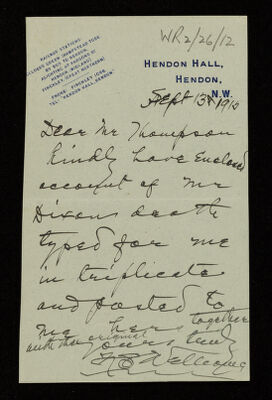 WR2/26/12
RAILWAY STATIONS:
GOLDERS GREEN (HAMPSTEAD TUBE)
HENDON, MIDLAND.
FINCHLEY (GREAT NORTHERN)
PHONE: FINCHLEY 1098.
TEL: "HENDON HALL, HENDON."
HENDON HALL,
HENDON,
N.W.
Sept 13th 1910
Dear Mr Thompson
Kindly have Enclosed
account of Mr
Dixons death
typed for me
in triplicate
and posted to
me here together
with the original
yours truly